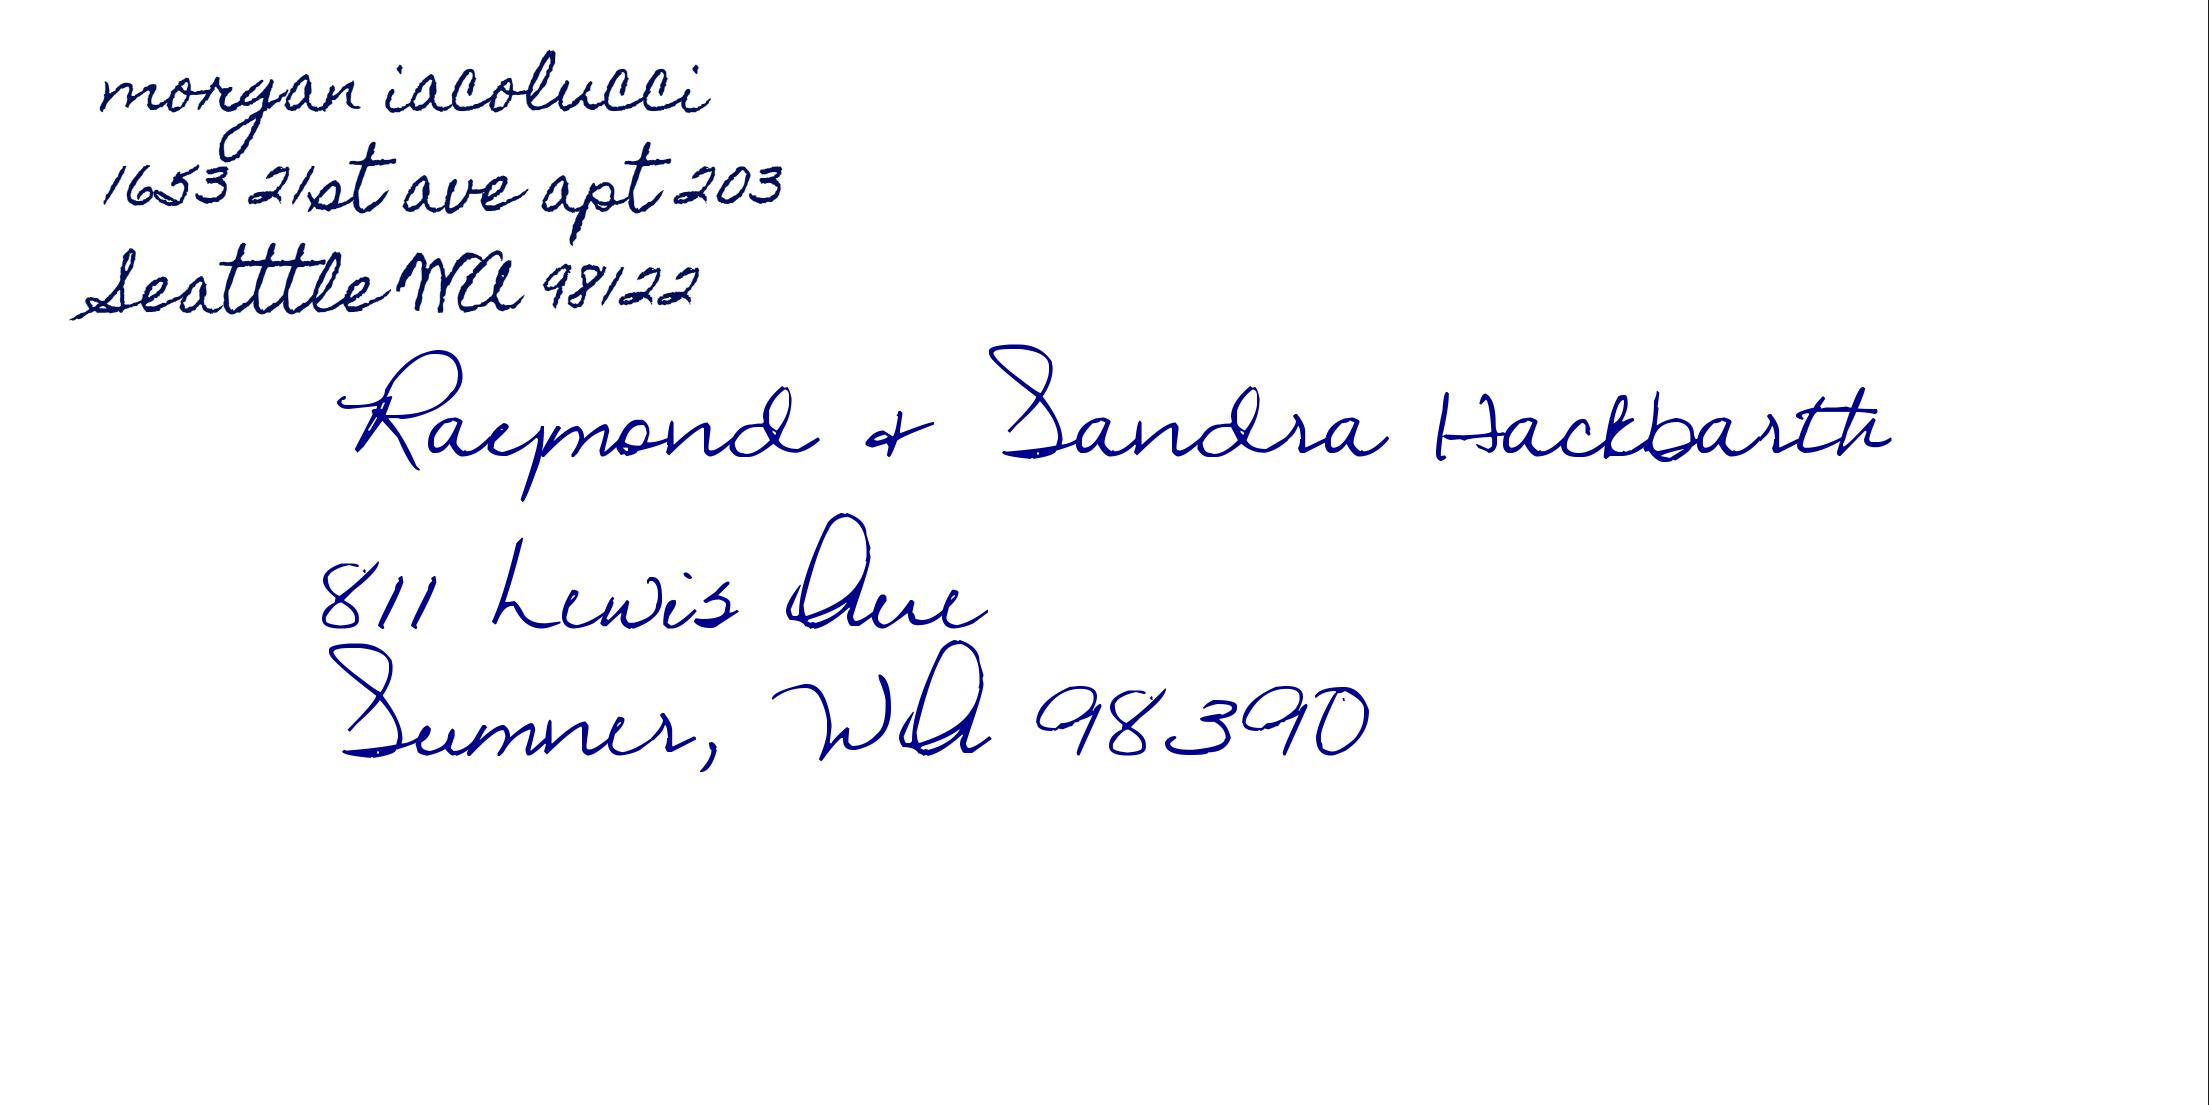 morgan iacolucci
1653 21st ave apt 203
Seatttle WA 98122
Raymond & Sandra Hackbarth
811 Lewis Ave
Sumner, WA 98390